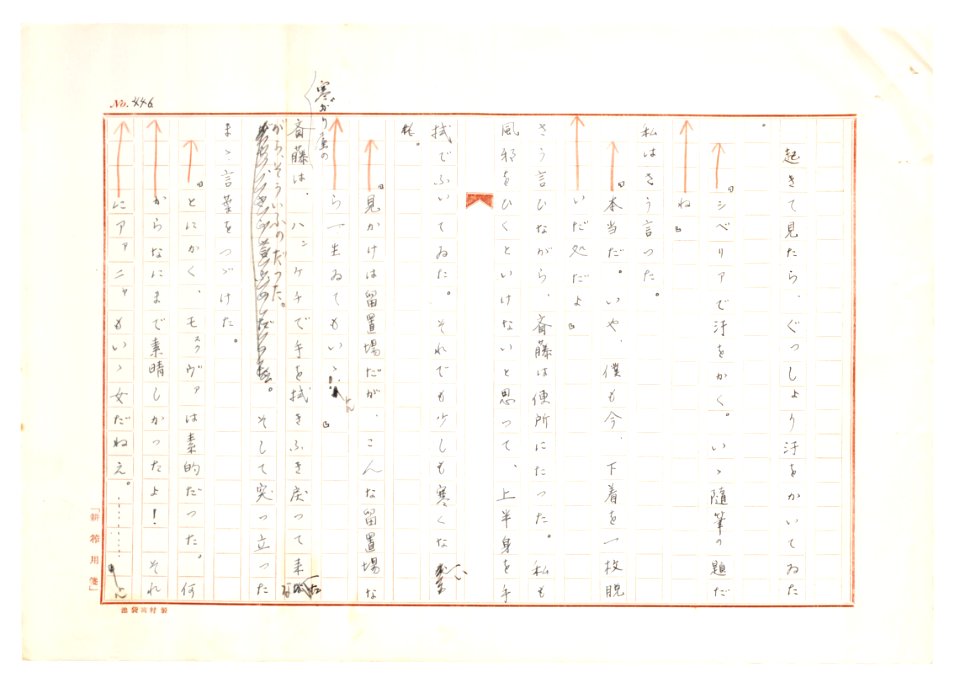 No. 446
起きて見たら、ぐつしより汗をかいてゐた
。
『シベリアで汗をかく。いゝ随筆の題だ
ね』
私はさう言つた。
『本当だ。いや、僕も今、下着を一枚脱
いだ処だよ』
さう言ひながら、斎藤は便所にたつた。私も
風邪をひくといけないと思つて、上半身を手
拭でふいてゐた。それでも少しも寒くな
い。
『見かけは留置場だが、こんな留置場な
ら一生ゐてもいゝ
ね』
寒がり屋の
斎藤は、ハンケチで手を拭きふき戻つて来
た
がら、そういふのだつた。
。そして突つ立つた
まゝ言葉をつゞけた。
『とにかく、モスクヴァは素的だつた。何
からなにまで素晴しかつたよ！それ
にアァニャもいゝ女だねえ。…………
「新稿用箋」